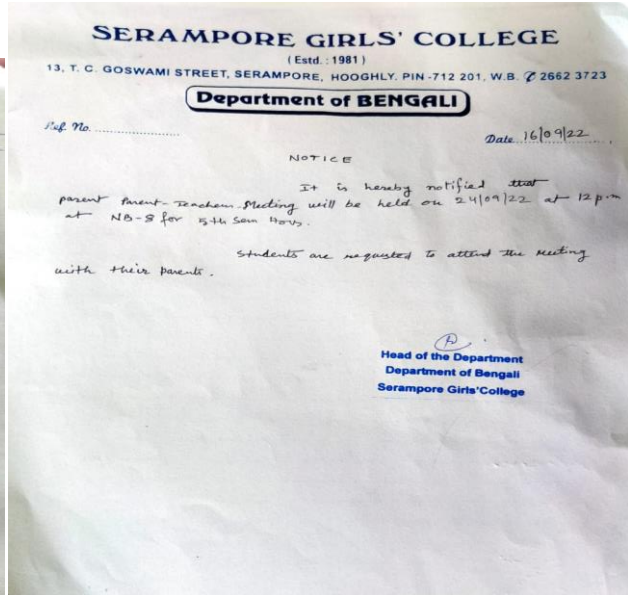 SERAMPORE GIRLS' COLLEGE
( Estd. : 1981 )
13, T. C. GOSWAMI STREET, SERAMPORE, HOOGHLY. PIN -712 201, W.B. ✆ 2662 3723
Department of BENGALI
Ref. No. ........................
Date 16/09/22
NOTICE
It is hereby notified that
parent Parent-Teachers Meeting will be held on 24/09/22 at 12 p.m
at NB-8 for 5th Sem Hons.
Students are requested to attend the Meeting
with their parents.
Head of the Department
Department of Bengali
Serampore Girls'College